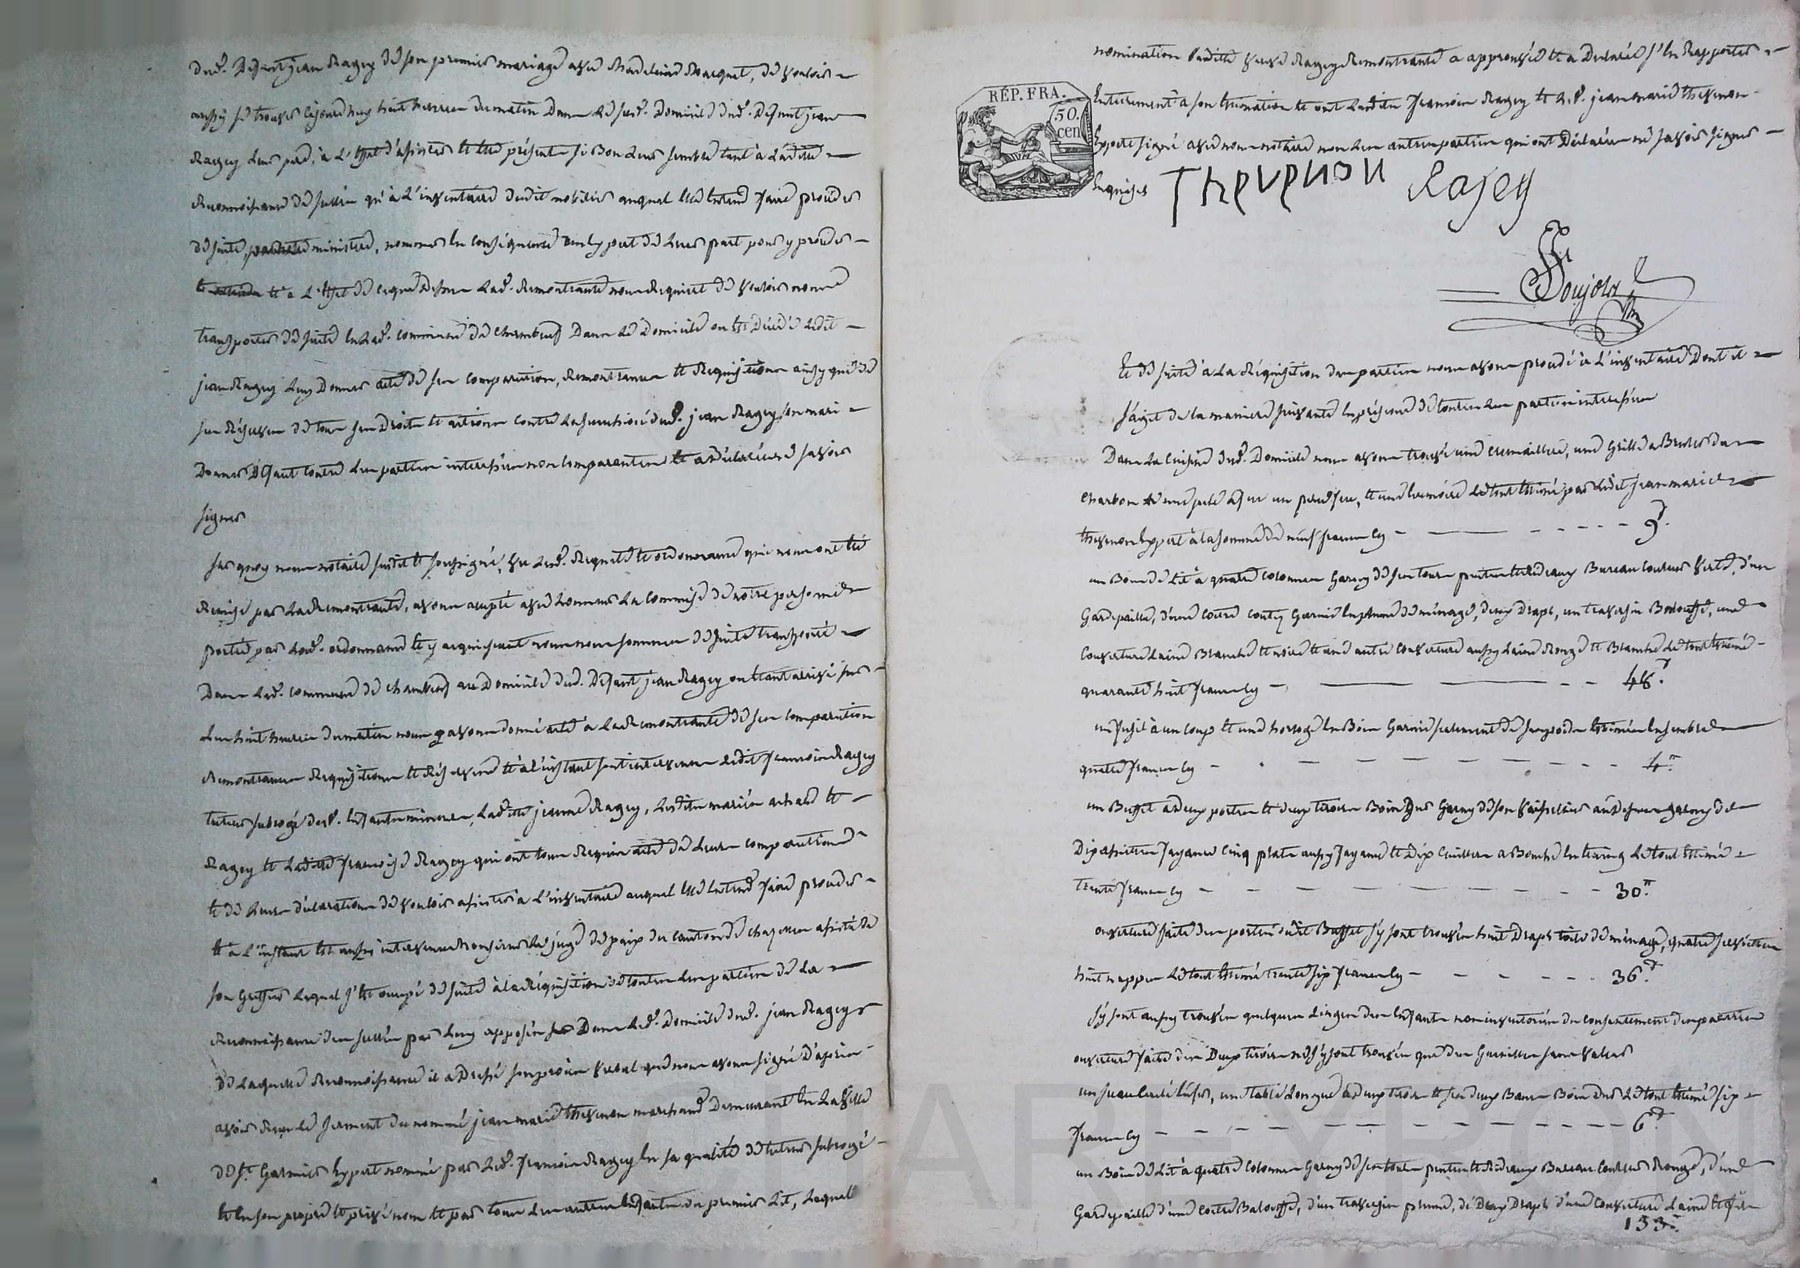 dud. Défunt jean Ragey de son premier mariage avec Madelaine Marquet, de vouloir
aussy se trouver cejourd'huy huit heures du matin Dans le susd. Domicile dud. Défunt jean
Ragey leur père, à l'effet d'assister et être présents si Bon leur semble tant à ladite
Reconnoissance de scellés qu'à l'inventaire dudit mobilier auquel elle entend faire procéder
de suite, ministère, nommer en conséquence expert de leur part pour y procéder
et à l'effet de ce que Dessus lad. Remontrante nous Requiert de vouloir nous
transporter de suite en lad. commune de chambœuf Dans le Domicile où est Décédé ledit
jean Ragey luy Donner acte de ses comparution, Remontrances et Requisitions ainsy que de
ses Réserves de tous ses Droits et actions contre la succession dud. jean Ragey son mari
Donner Défaut contre les parties intéressées non comparantes et a déclaré ne savoir
signer
sur quoy nous notaire susdit et soussigné, vu lad. Requete et ordonnance qui nous ont été
Remise par la Remontrante, avons accepté avec honneur la commise de notre personne
portée par lad. ordonnance et y acquiesçant nous nous sommes de suite transporté
Dans lad. commune de chambœuf au Domicile dud. Défunt jean Ragey où étant arrivé sur
les huit heures du matin nous avons donné acte à la Remontrante de ses comparution
Remontrances Requisitions et Réserves et à l'instant sont intervenus ledit françois Ragey
tuteur subrogé desd. enfants mineurs, Ladite jeanne Ragey, lesdits mariés achard et
Ragey et Ladite françoise Ragey qui ont tous Requis acte de leurs comparutions
et de leurs déclarations de vouloir assister à l'inventaire auquel elle entend faire procéder
et à l'instant est aussy intervenu monsieur le juge de paix du canton de chazelles assisté de
son Greffier lequel s'est occupé de suite à la Réquisition de toutes les parties de la
Reconnoissance des scellés par luy apposés Dans led. Domicile dud. jean Ragey
de laquelle Reconnoissance il a Dressé son procès verbal que nous avons signé D'après
avoir Reçu le serment du nommé jean marie thevenon marchand Demeurant en la ville
de St. Galmier Expert nommé par led. françois Ragey en sa qualité de tuteur subrogé
et en son propre et privé nom et par tous les autres enfants du premier Lit, Laquelle
nomination ladite veuve Ragey Remontrante a approuvé et a Déclaré s'en Rapporter
Entièrement à son estimation et ont lesdits françois Ragey et led. jean marie thevenon
Expert signé avec nous notaire non les autres parties qui ont Déclaré ne savoir signer
Enquises Thevenon Ragey
RÉP. FRA.
50.
cen
Et de suite à la Réquisition des parties nous avons procédé à l'inventaire Dont il
s'agit de la manière suivante en présence de toutes les parties intéressées
Dans la cuisine dud. Domicile nous avons trouvé une cremaillere, une Grille à Bruler du
charbon une pele à feu un pend feu, et une lumière le tout estimé par ledit jean marie
thevenon Expert à la somme de neuf francs cy 9.
un Bois de Lit à quatre colonnes Garny de son tour pentes et Rideaux Bureau couleur verte, d'un
Gardepaille, d'une coetre coutty Garnie en plume de ménage, deux Draps, un traversin Balouffe, une
couverture laine Blanche et noire et une autre couverture aussy laine Rouge et Blanche le tout estimé
quarante huit francs cy 48.
un fusil à un coup et une horloge en Bois Garnie seulement de ses poids estimés ensemble
quatre francs cy 4.
un Buffet à deux portes et deux tiroirs Bois Dur Garny de son vaissellier au dessus garny de
Dix assiettes fayance cinq plats aussy fayance et dix cuilliers à Bouche en étaing le tout estimé
trente francs cy 30.
ouverture faite des portes dudit Buffet s'y sont trouvés huit Draps toile de ménage, quatre serviettes
huit nappes le tout estimé trente six francs cy 36.
s'y sont aussy trouvés quelques linges des enfants non inventoriés du consentement des parties
ouverture faite des Deux tiroirs ne s'y sont trouvés que des Guenilles sans valeur
un seau ferré en fer, une table longue à deux tiroirs et ses deux Bancs Bois Dur le tout estimé six
francs cy 6.
un Bois de Lit à quatre colonnes Garny de son tour pentes et Rideaux Bureau couleur Rouge, d'une
Gardepaille d'une coetre Balouffe, d'un traversin plume, de Deux Draps d'une couverture laine
133.